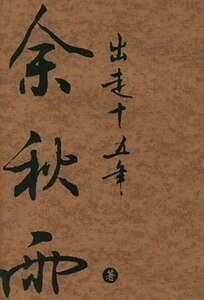 出走十五年
余秋雨
著